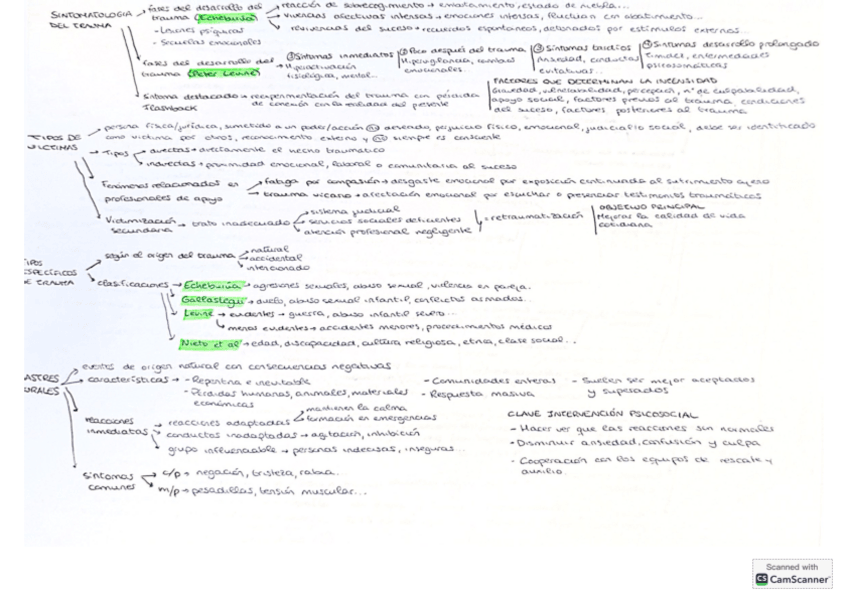 SINTOMATOLOGIA DEL TRAUMA
fases del desarrollo del trauma (Echeburúa)
- Lesiones psíquicas
- Secuelas emocionales
reacción de sobrecogimiento → embotamiento, estado de niebla...
vivencias afectivas intensas → emociones intensas, fluctúan con abatimiento...
revivencias del suceso → recuerdos espontáneos, detonados por estímulos externos...
fases del desarrollo del trauma (Peter Levine)
① Síntomas inmediatos
Hiperactivación fisiológica, mental...
② Poco después del trauma
Hipervigilancia, cambios emocionales...
③ Síntomas tardíos
Ansiedad, conductas evitativas...
④ Síntomas desarrollo prolongado
Timidez, enfermedades psicosomáticas
Síntoma destacado → reexperimentación del trauma con pérdida
Flashback de conexión con la realidad del presente
FACTORES QUE DETERMINAN LA INTENSIDAD
Gravedad, vulnerabilidad, percepción, nº de culpabilidad,
apoyo social, factores previos al trauma, condiciones
del suceso, factores posteriores al trauma
TIPOS DE VICTIMAS
persona física/jurídica, sometida a un poder/acción no deseado, perjuicio físico, emocional, judicial o social, debe ser identificado
como víctima por otros, reconocimiento externo y no siempre es consciente
Tipos
directas → directamente el hecho traumático
indirectas → proximidad emocional, laboral o comunitaria al suceso
Fenómenos relacionados en profesionales de apoyo
fatiga por compasión → desgaste emocional por exposición continuada al sufrimiento ajeno
trauma vicario → afectación emocional por escuchar o presenciar testimonios traumáticos
Victimización secundaria → trato inadecuado
sistema judicial
servicios sociales deficientes
atención profesional negligente
= retraumatización
OBJETIVO PRINCIPAL
Mejorar la calidad de vida cotidiana
TIPOS ESPECÍFICOS DE TRAUMA
según el origen del trauma
natural
accidental
intencionado
clasificaciones → Echeburúa → agresiones sexuales, abuso sexual, violencia en pareja.
Gallastegui → duelo, abuso sexual infantil, conflictos armados...
Levine → evidentes → guerra, abuso infantil severo...
menos evidentes → accidentes menores, procedimientos médicos
Nieto et al → edad, discapacidad, cultura religiosa, etnia, clase social...
ASTRES URALES
eventos de origen natural con consecuencias negativas
características → - Repentina e inevitable
- Pérdidas humanas, animales, materiales económicas
- Comunidades enteras
- Respuesta masiva
- Suelen ser mejor aceptados y superados
reacciones inmediatas
reacciones adaptadas
mantienen la calma
formación en emergencias
conductas inadaptadas → agitación, inhibición
grupo influenciable → personas indecisas, inseguras...
Síntomas comunes
c/p → negación, tristeza, rabia...
m/p → pesadillas, tensión muscular...
CLAVE INTERVENCIÓN PSICOSOCIAL
- Hacer ver que las reacciones son normales
- Disminuir ansiedad, confusión y culpa
- Cooperación con los equipos de rescate y auxilio.
Scanned with
CS CamScanner